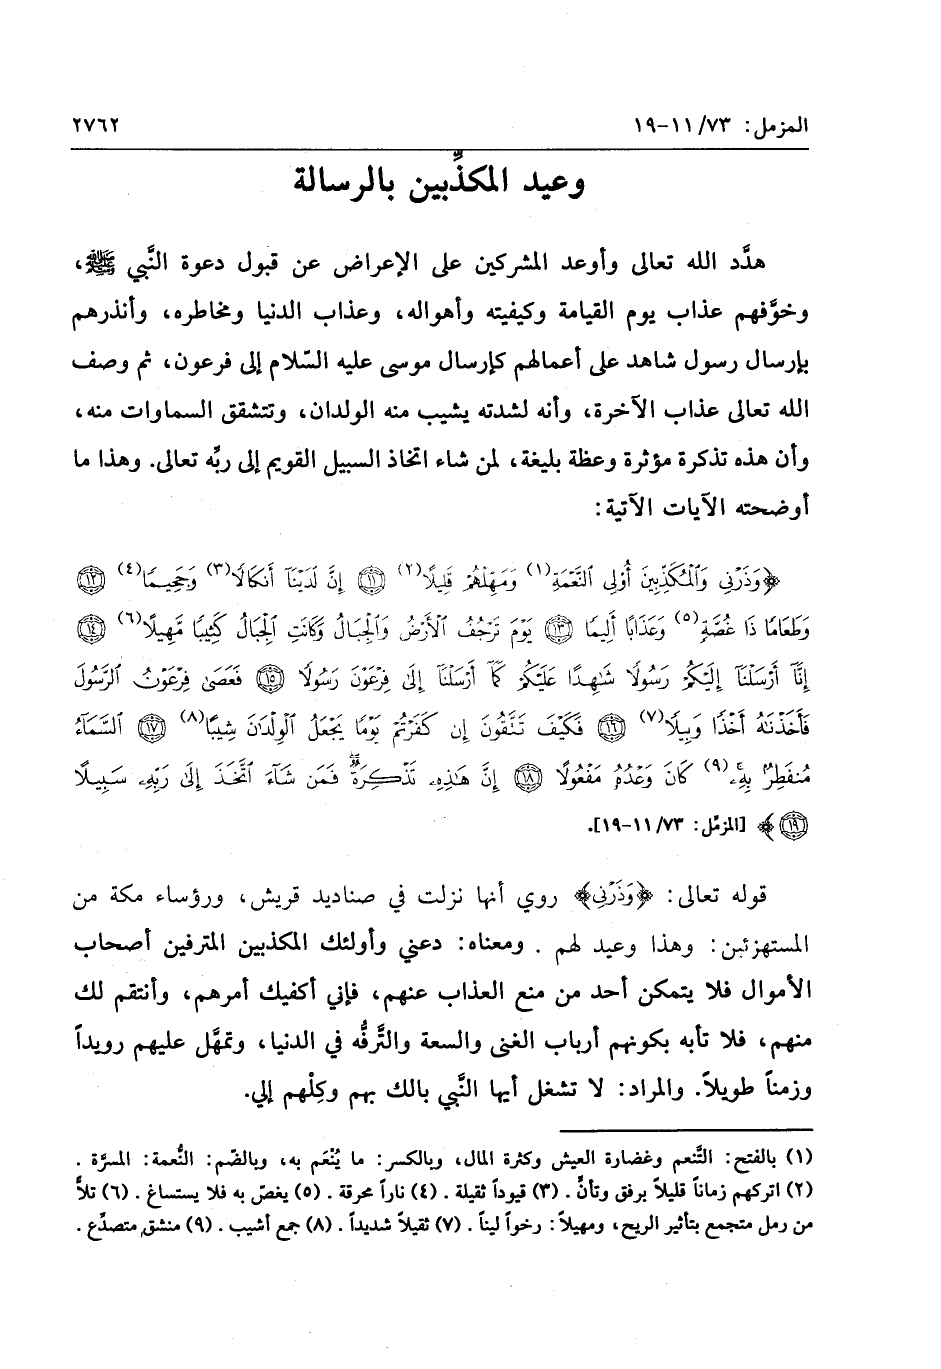 المزمل: ٧٣/ ١١-١٩ ٢٧٦٢
وعيد المكذِّبين بالرسالة
هدَّد الله تعالى وأوعد المشركين على الإعراض عن قبول دعوة النَّبي ﷺ،
وخوَّفهم عذاب يوم القيامة وكيفيته وأهواله، وعذاب الدنيا ومخاطره، وأنذرهم
بإرسال رسول شاهد على أعمالهم كإرسال موسى عليه السّلام إلى فرعون، ثم وصف
الله تعالى عذاب الآخرة، وأنه لشدته يشيب منه الولدان، وتتشقق السماوات منه،
وأن هذه تذكرة مؤثرة وعظة بليغة، لمن شاء اتخاذ السبيل القويم إلى ربِّه تعالى. وهذا ما
أوضحته الآيات الآتية:
﴿وَذَرْنِي وَالْمُكَذِّبِينَ أُوْلِي النَّعْمَةِ(١) وَمَهِّلْهُمْ قَلِيلًا(٢) ١١ إِنَّ لَدَيْنَآ أَنكَالًا(٣) وَجَحِيمًا(٤) ١٢
وَطَعَامًا ذَا غُصَّةٍ(٥) وَعَذَابًا أَلِيمًا ١٣ يَوْمَ تَرْجُفُ الْأَرْضُ وَالْجِبَالُ وَكَانَتِ الْجِبَالُ كَثِيبًا مَّهِيلًا(٦) ١٤
إِنَّآ أَرْسَلْنَآ إِلَيْكُمْ رَسُولًا شَٰهِدًا عَلَيْكُمْ كَمَآ أَرْسَلْنَآ إِلَىٰ فِرْعَوْنَ رَسُولًا ١٥ فَعَصَىٰ فِرْعَوْنُ الرَّسُولَ
فَأَخَذْنَٰهُ أَخْذًا وَبِيلًا(٧) ١٦ فَكَيْفَ تَتَّقُونَ إِن كَفَرْتُمْ يَوْمًا يَجْعَلُ الْوِلْدَٰنَ شِيبًا(٨) ١٧ السَّمَآءُ
مُنفَطِرٌ بِهِۦ(٩) كَانَ وَعْدُهُۥ مَفْعُولًا ١٨ إِنَّ هَٰذِهِۦ تَذْكِرَةٌ فَمَن شَآءَ اتَّخَذَ إِلَىٰ رَبِّهِۦ سَبِيلًا
١٩﴾ [المزمّل: ٧٣/ ١١-١٩].
قوله تعالى: ﴿وَذَرْنِي﴾ روي أنها نزلت في صناديد قريش، ورؤساء مكة من
المستهزئين: وهذا وعيد لهم . ومعناه: دعني وأولئك المكذبين المترفين أصحاب
الأموال فلا يتمكن أحد من منع العذاب عنهم، فإني أكفيك أمرهم، وأنتقم لك
منهم، فلا تأبه بكونهم أرباب الغنى والسعة والتَّرفُّه في الدنيا، وتمهَّل عليهم رويداً
وزمناً طويلاً. والمراد: لا تشغل أيها النَّبي بالك بهم وكِلْهم إلي.
(١) بالفتح: التَّنعم وغضارة العيش وكثرة المال، وبالكسر: ما يُنْعَم به، وبالضّم: النُّعمة: المسرَّة .
(٢) اتركهم زماناً قليلاً برفق وتأنٍّ . (٣) قيوداً ثقيلة . (٤) ناراً محرقة . (٥) يغصّ به فلا يستساغ . (٦) تلاًّ
من رمل متجمع بتأثير الريح، ومهيلاً: رخواً ليناً . (٧) ثقيلاً شديداً . (٨) جمع أشيب . (٩) منشق متصدِّع .